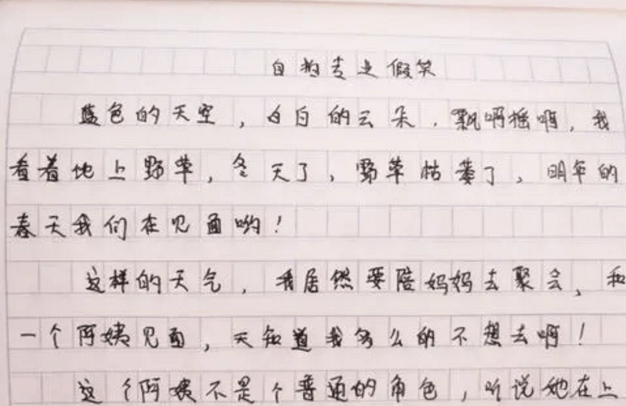 自拍专之假笑
蓝色的天空，白白的云朵，飘啊摇啊，我
看着地上野草，冬天了，野草枯萎了，明年的
春天我们在见面哟！
这样的天气，我居然要陪妈妈去聚会，和
一个阿姨见面，天知道我多么的不想去啊！
这个阿姨不是个普通的角色，听说她在上